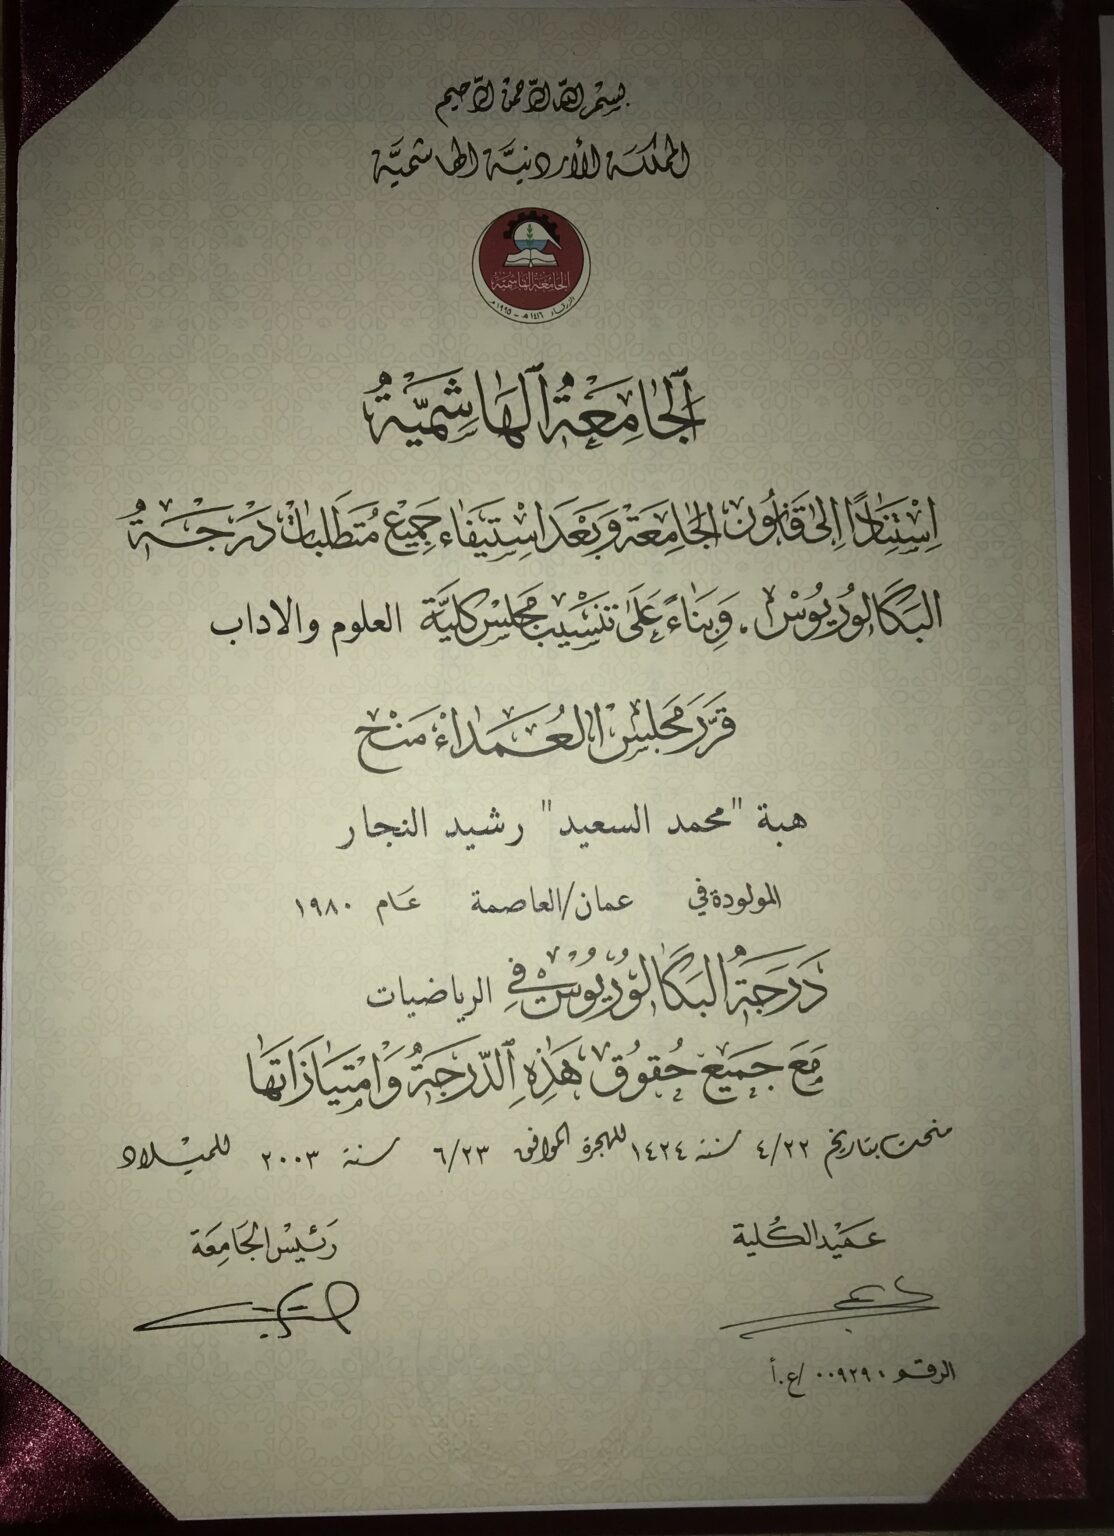 بسم الله الرحمن الرحيم
المملكة الأردنية الهاشمية
الجامعة الهاشمية
الزرقاء ١٤١٦هـ - ١٩٩٥م
الجَامِعَةُ الهَاشِمِيَّةُ
اِسْتِنَادًا اِلىٰ قَانُونِ الجَامِعَةِ وَبَعْدَ اسْتِيفَاءِ جَمِيْعِ مُتَطَلبَاتِ دَرَجَةِ
البَكَالوُريُوسْ . وَبِنَاءً عَلَىٰ تَنْسِيْبِ مَجْلسِ كليَّة العلوم والاداب
قَرَّرَ مَجْلِسُ العُمَدَاءْ مَنْح
هبة "محمد السعيد" رشيد النجار
المولودة في عمان/العاصمة عَام ١٩٨٠
دَرَجَةُ البَكَالوُريُوسْ فيِ الرياضيات
مَعَ جَمِيْعِ حُقوُقِ هَذِهِ الدَّرَجَةُ وَامْتِيَازَاتِهَا
منحت بتاريخ ٤/٢٢ سنة ١٤٢٤ للهجرة الموافق ٦/٢٣ سنة ٢٠٠٣ للميْلاد
عَمِيْد الكُلية
رَئِيْس الجَامِعَة
الرقم ٠٠٩٢٩٠ /ع.أ